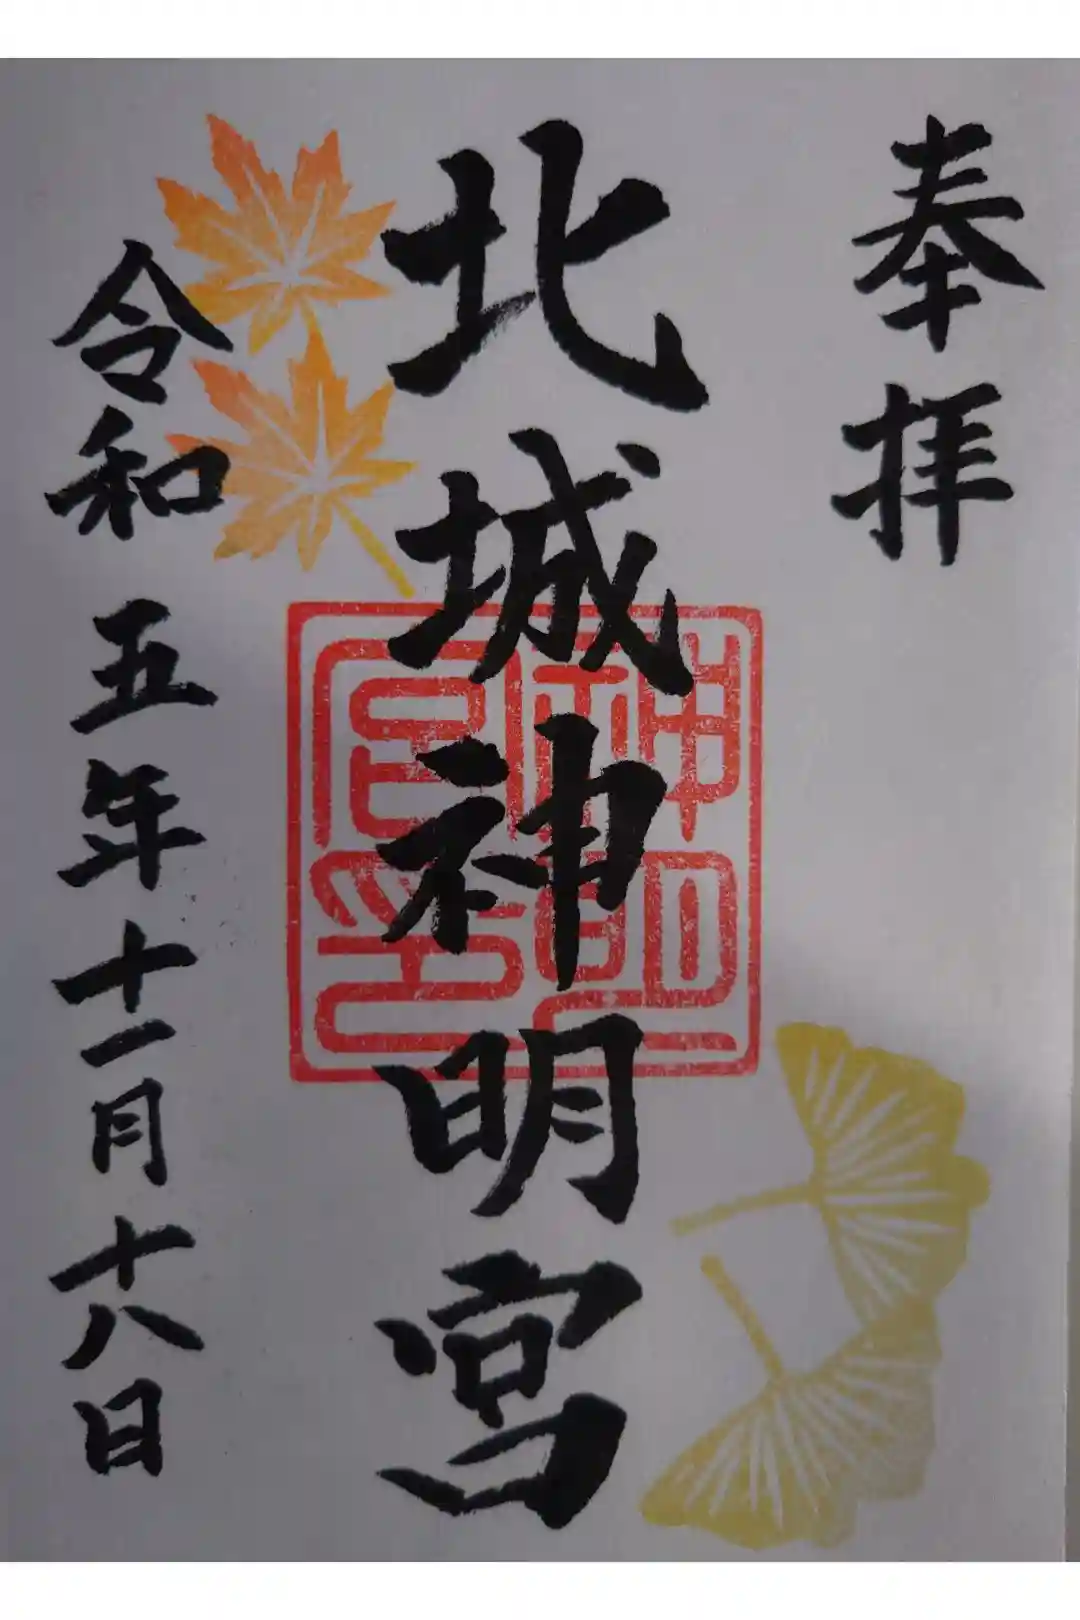 奉拝
北城神明宮
神明宮印
令和五年十一月十八日